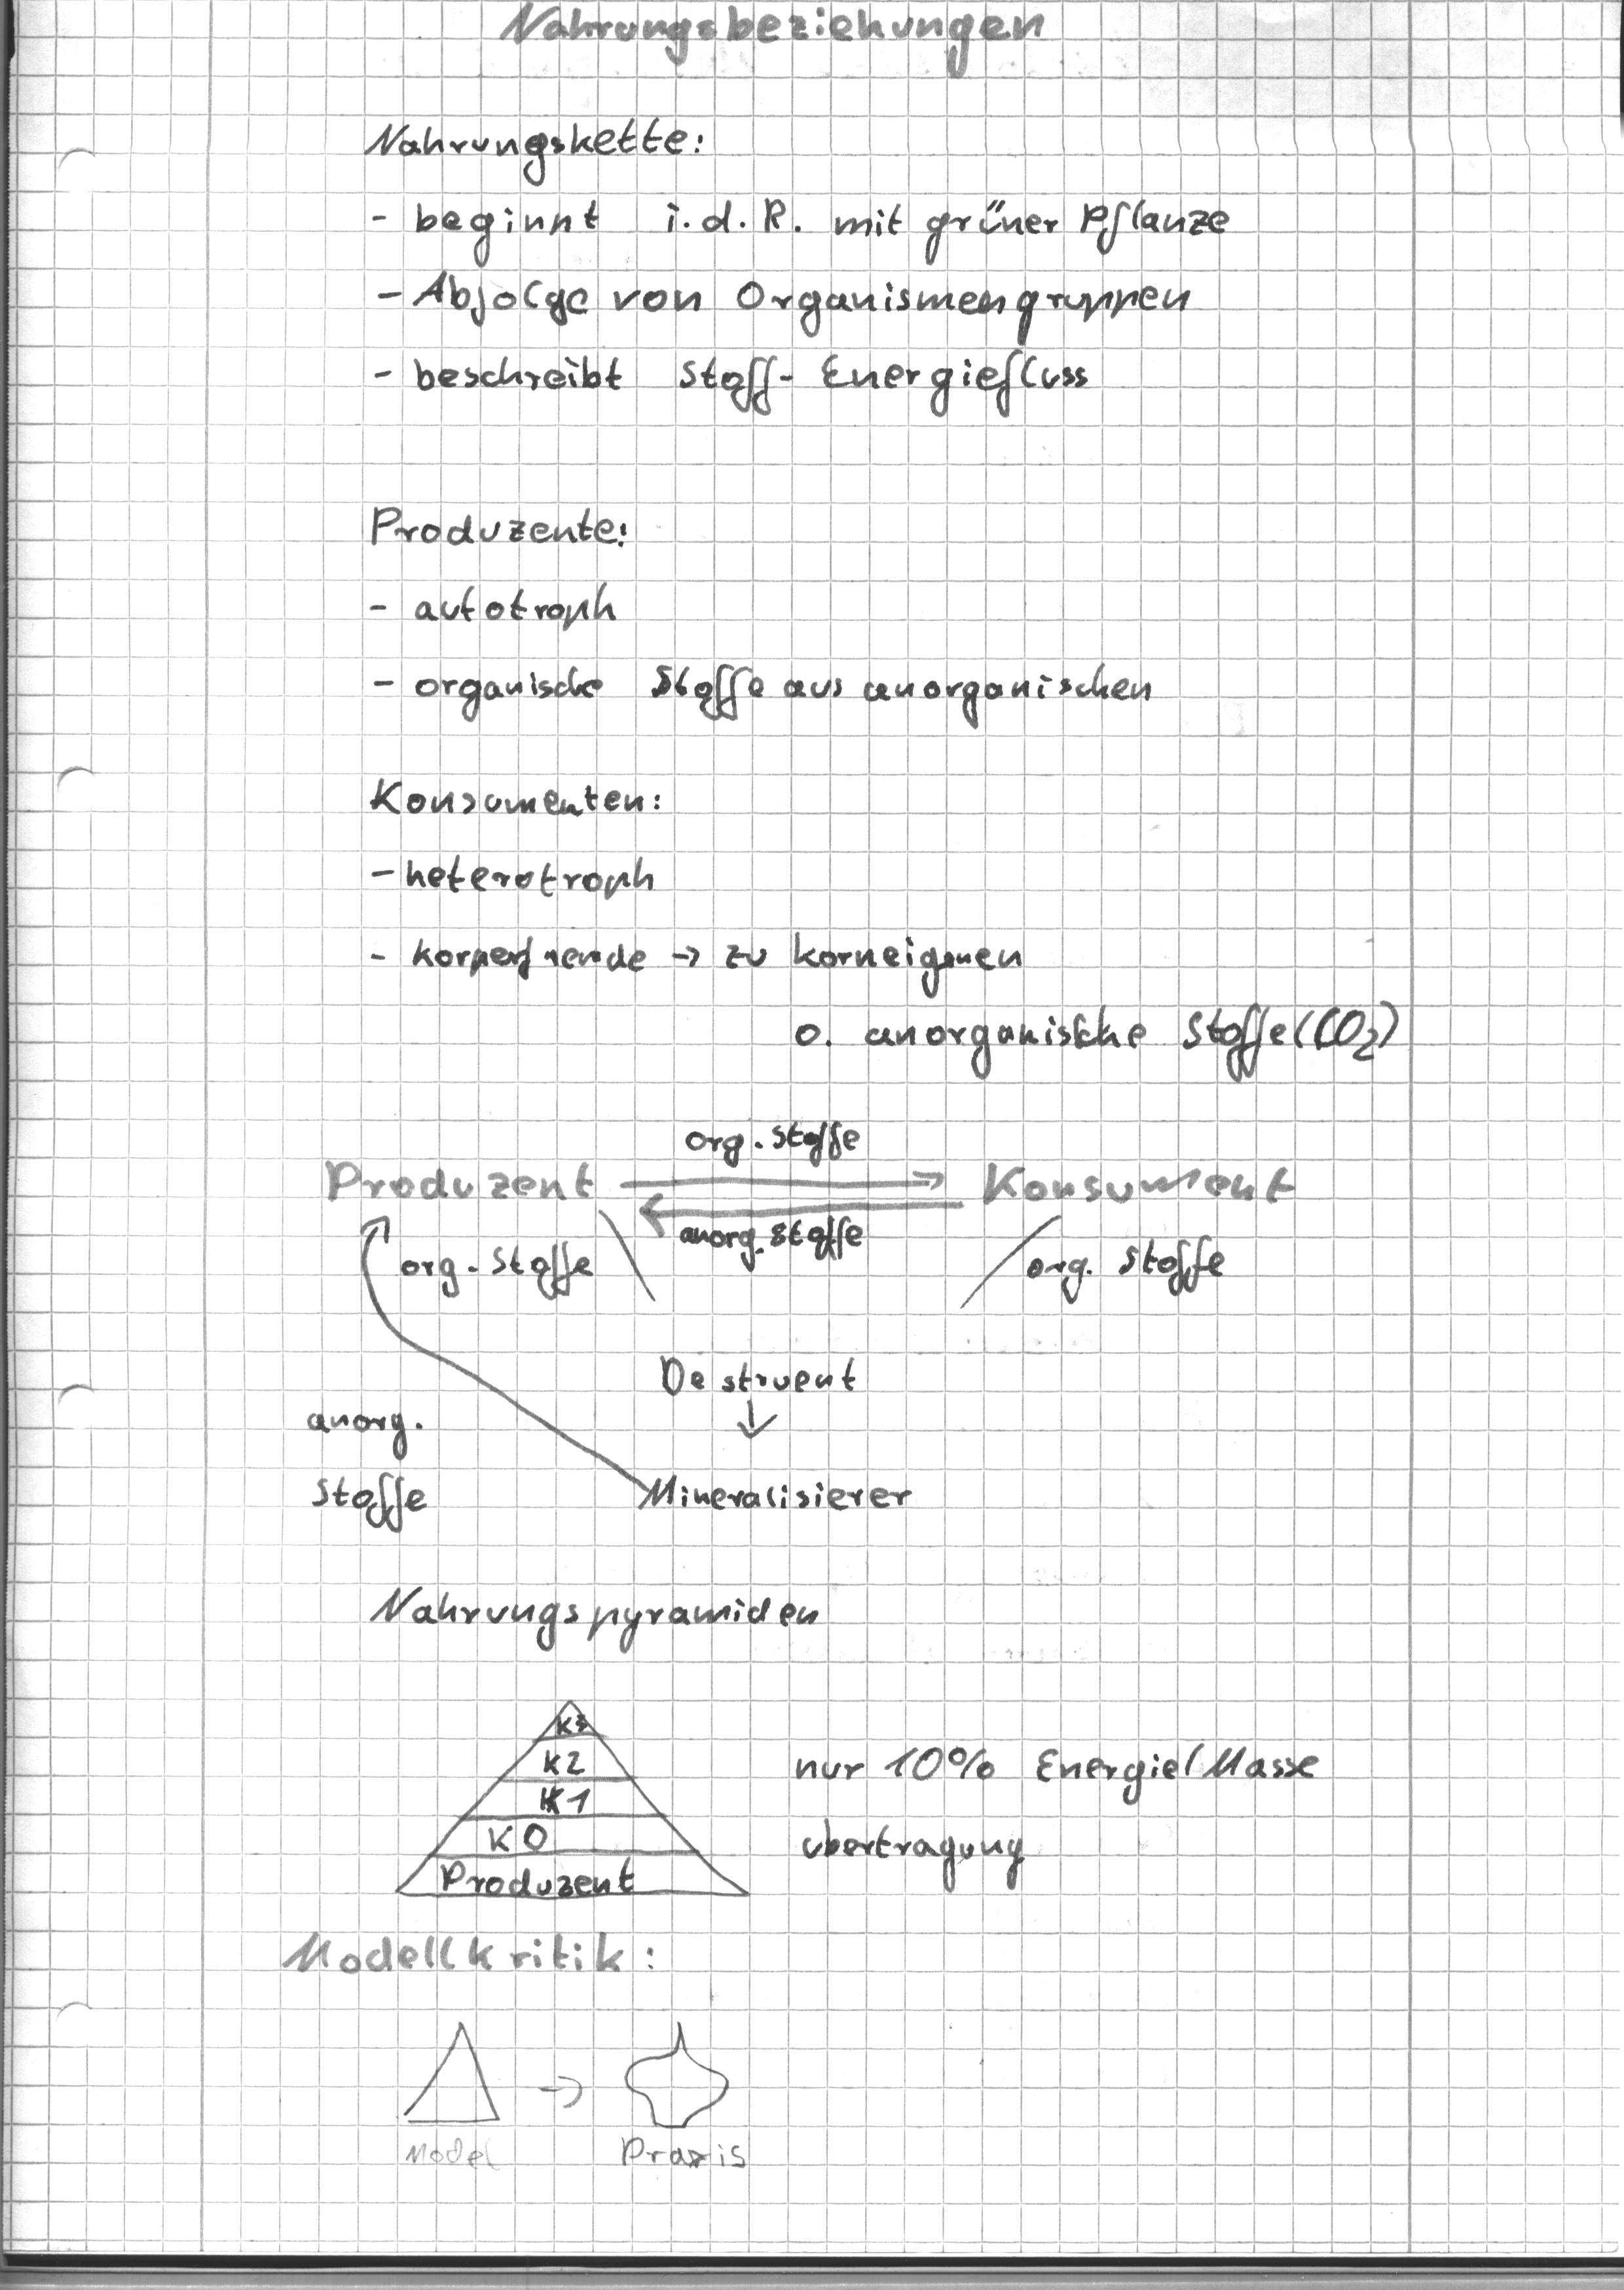 Nahrungsbeziehungen
Nahrungskette:
- beginnt i.d.R. mit grüner Pflanze
- Abfolge von Organismengruppen
- beschreibt Stoff- Energiefluss
Produzente:
- autotroph
- organische Stoffe aus anorganischen
Konsumenten:
- heterotroph
- körperfremde → zu korpeigenen
o. anorganische Stoffe (CO2)
org. Stoffe
Produzent
Konsument
anorg. Stoffe
org. Stoffe
org. Stoffe
Destruent
anorg.
Stoffe
Mineralisierer
Nahrungspyramiden
K3
K2
K1
K0
Produzent
nur 10% Energie/Masse
ubertragung
Modellkritik:
→
Model
Praxis